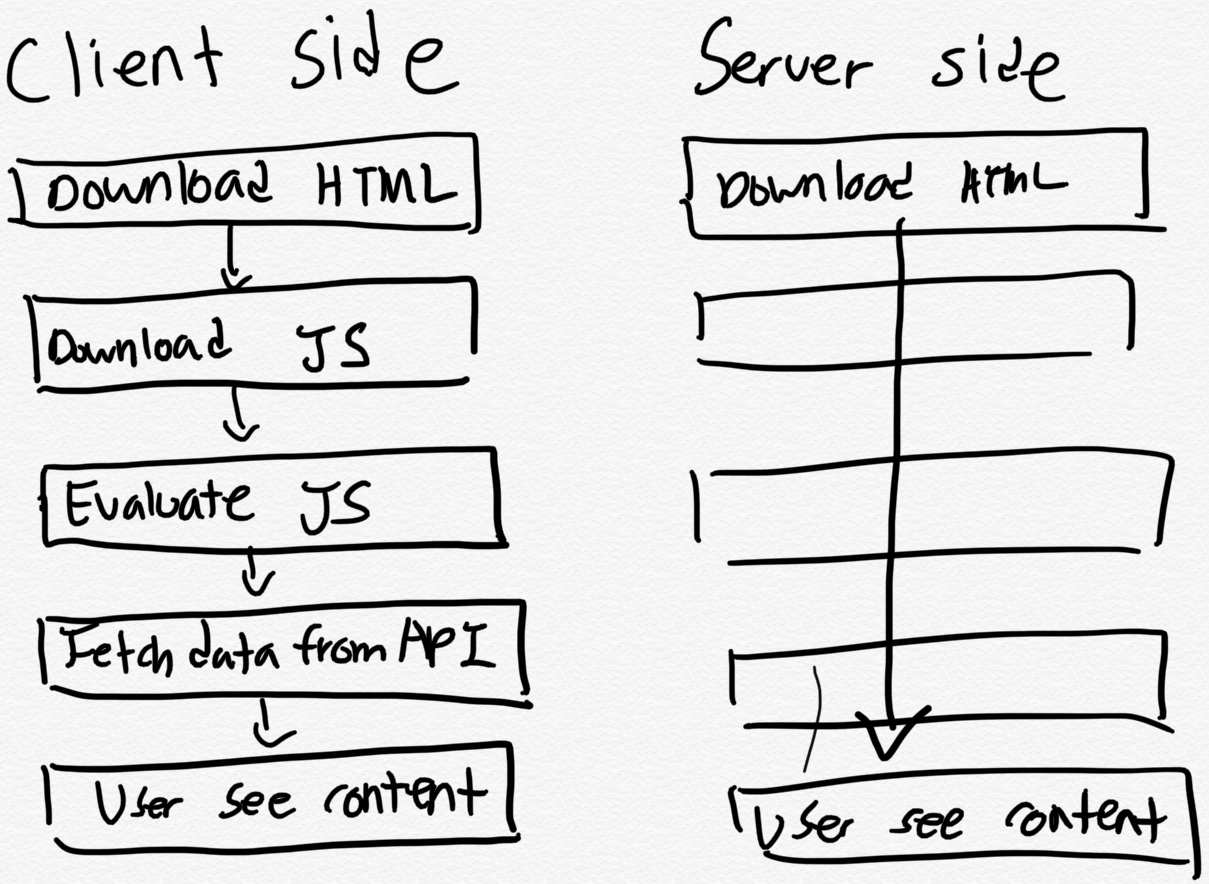 Client side
Download HTML
Download JS
Evaluate JS
Fetch data from API
User see content
Server side
Download HTML
User see content